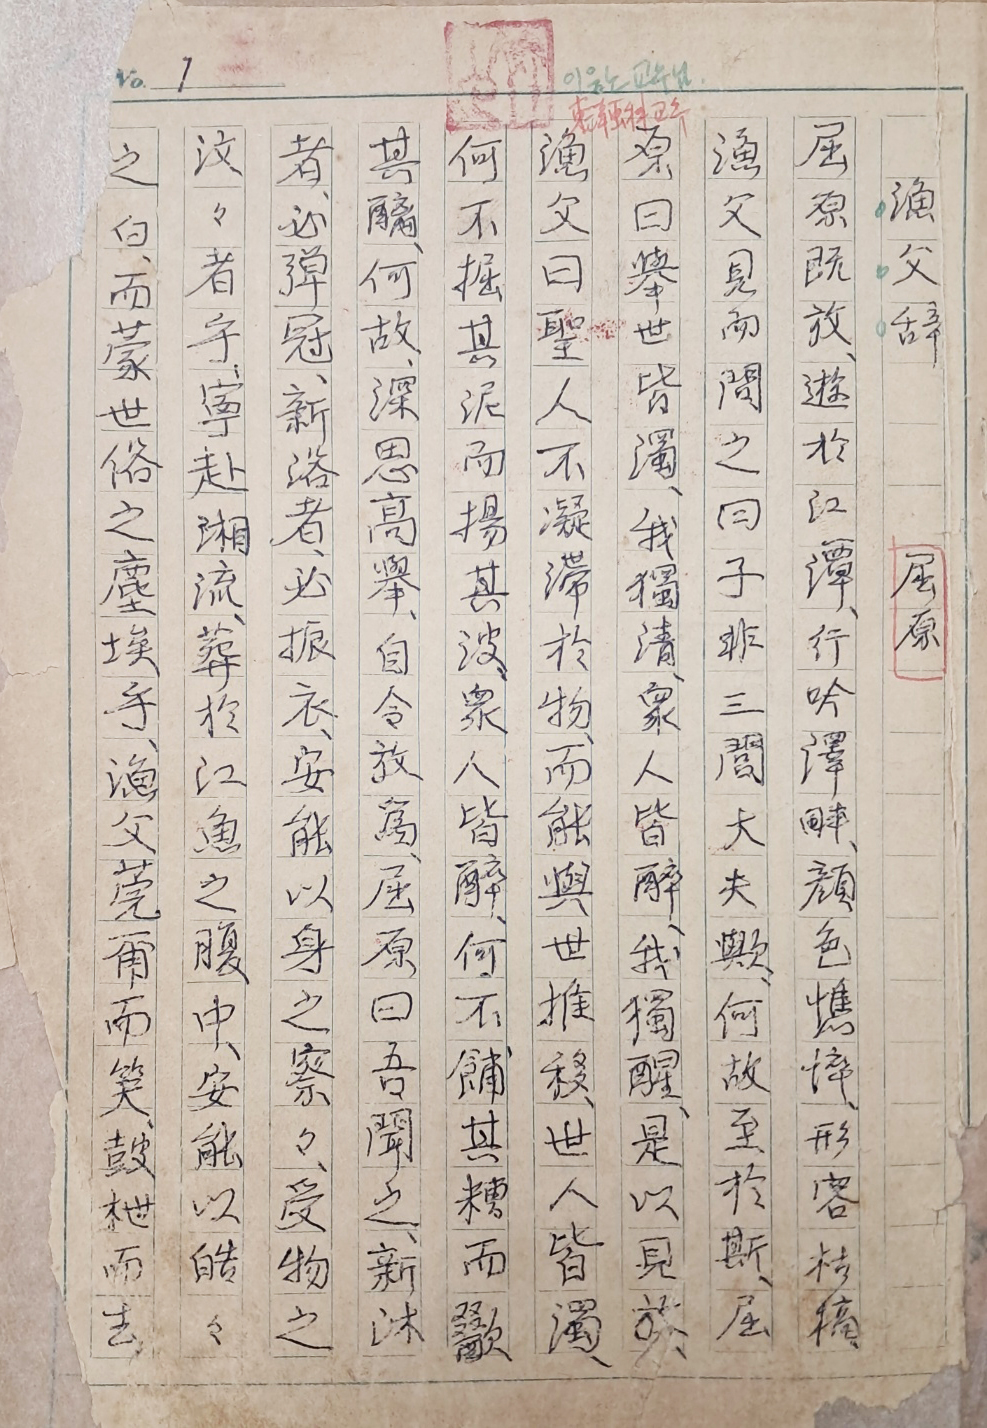 No. 1
이응노 교수님
漁父辞 屈原
屈原既放、遊於江潭、行吟澤畔、顔色憔悴、形容枯槁、
漁父見而問之曰子非三閭大夫歟、何故至於斯、屈
原曰擧世皆濁、我獨清、衆人皆醉、我獨醒、是以見放、
漁父曰聖人不凝滯於物、而能與世推移、世人皆濁、
何不掘其泥而揚其波、衆人皆醉、何不餔其糟而歠
其醨、何故、深思高擧、自令放爲、屈原曰吾聞之、新沐
者、必弾冠、新浴者、必振衣、安能以身之察々、受物之
汶々者乎、寧赴湘流、葬於江魚之腹中、安能以皓々
之白、而蒙世俗之塵埃乎、漁父莞爾而笑、鼓枻而去、